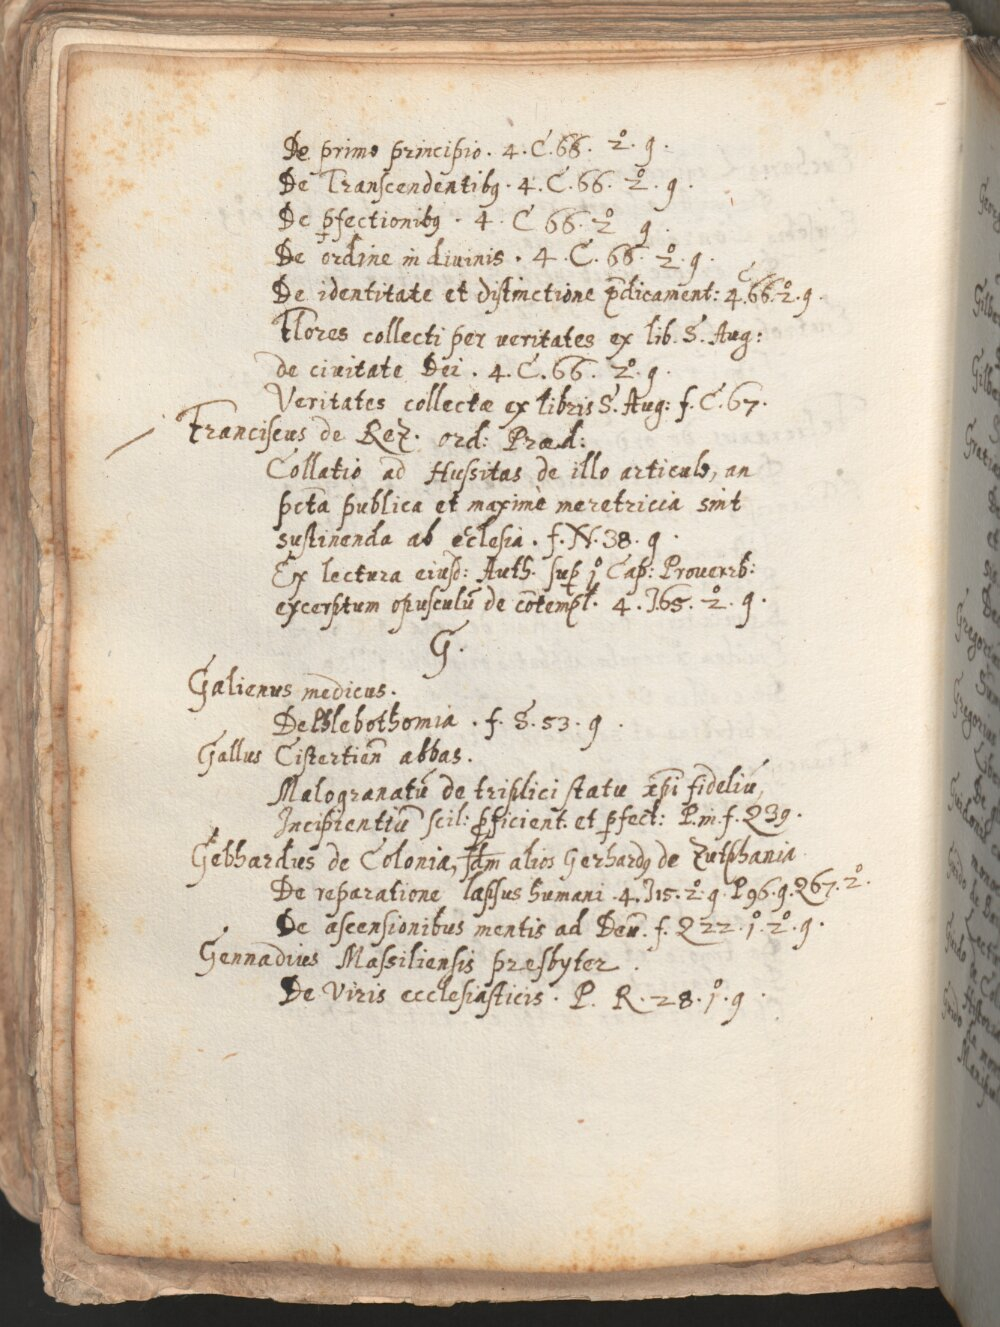 De primo principio. 4. C. 66. 2º. 9.
De Transcendentibꝯ. 4. C. 66. 2º. 9.
De ꝑfectionibꝯ. 4. C 66. 2º 9.
De ordine in diuinis. 4. C. 66. 2º. 9.
De identitate et distinctione p̄dicament: 4. C 66. 2º. 9.
Flores collecti per veritates ex lib. S. Aug:
de ciuitate Dei. 4. C. 66. 2º. 9.
Veritates collectæ ex libris S. Aug: f. C. 67.
Franciscus de Rez. ord: Præd:
Collatio ad Hussitas de illo articulo, an
pctā publica et maximè meretricia sint
sustinenda ab ecclesia. f. N. 38. 9.
Ex lectura eiusd: Auth. suꝑ 1º Cap: Prouerb:
excerptum opusculū de cōtempl. 4. J65. 2º. 9.
G.
Galienus medicus.
De Phlebothomia. f. S. 53. 9.
Gallus Cistertien̄ abbas.
Malogranatū de triplici statu xp̄i fideliū,
Incipientiū scil: ꝓficient. et ꝑfect: P. m. f. Q39.
Gebhardus de Colonia, scd̄m alios Gerhardꝯ de Zutphania
De reparatione lapsus humani. 4. J15. 2º. 9. P96. 9. Q67. 2º.
De ascensionibus mentis ad Deū. f. Q22. 1º. 2º. 9.
Gennadius Massiliensis presbyter.
De Viris ecclesiasticis. P. R. 28. 1º. 9.